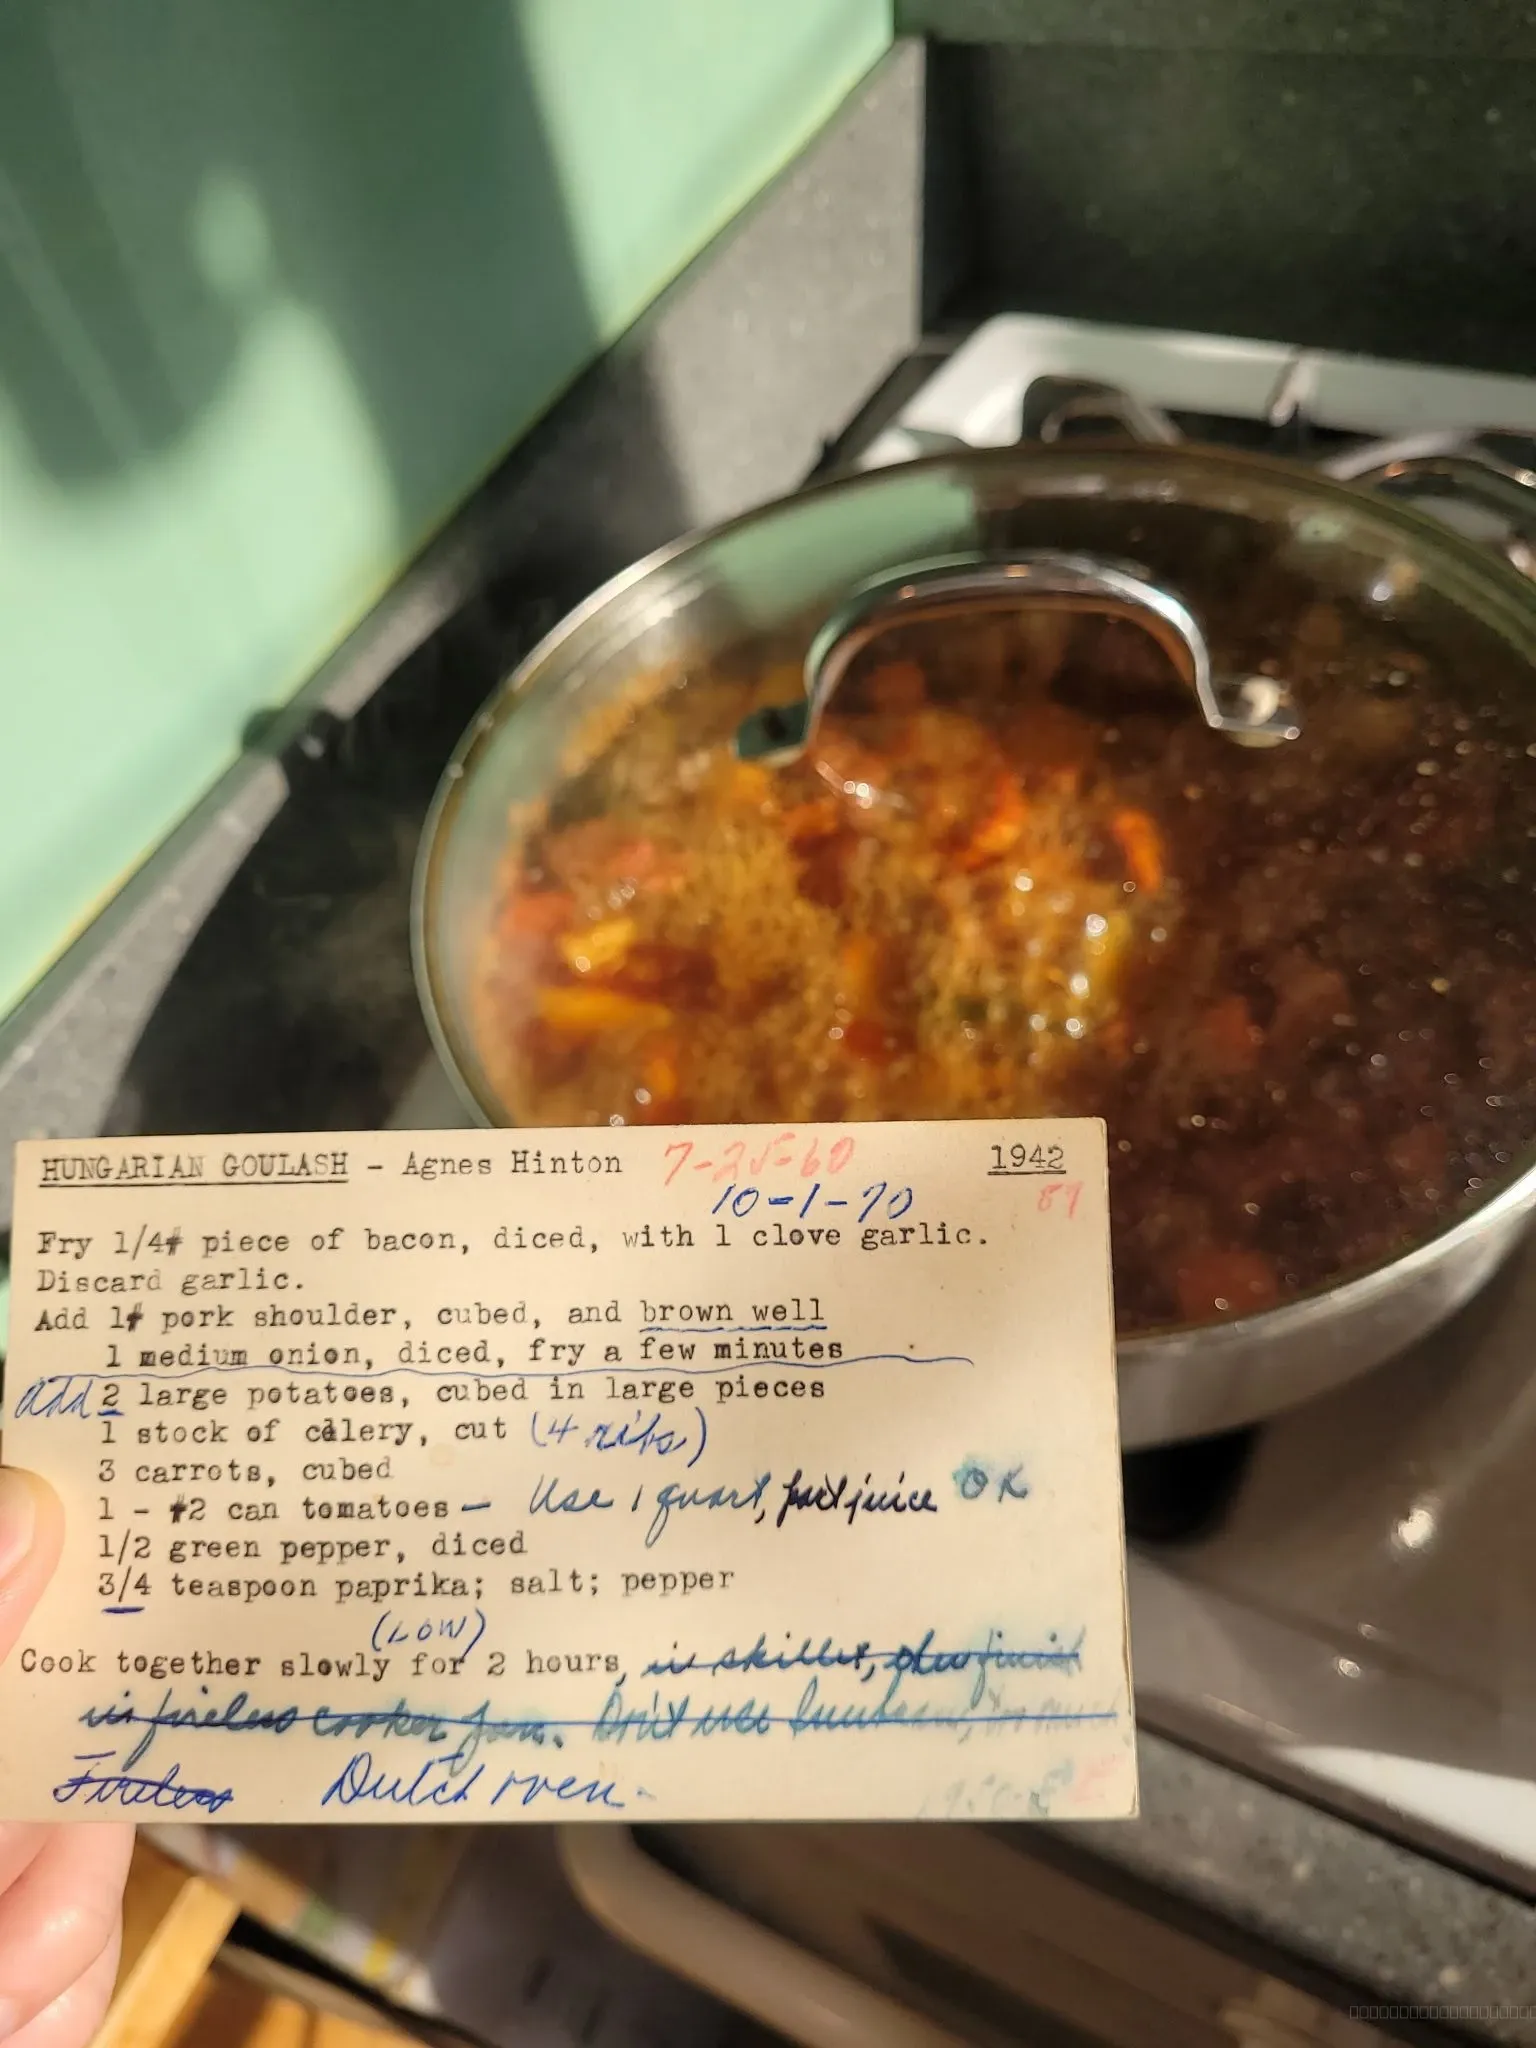 HUNGARIAN GOULASH - Agnes Hinton 7-25-60 1942
10-1-70
Fry 1/4# piece of bacon, diced, with 1 clove garlic.
Discard garlic.
Add 1# pork shoulder, cubed, and brown well
1 medium onion, diced, fry a few minutes
Add 2 large potatoes, cubed in large pieces
1 stock of celery, cut (4 ribs)
3 carrots, cubed
1 - #2 can tomatoes - Use 1 quart, part juice OK
1/2 green pepper, diced
3/4 teaspoon paprika; salt; pepper
(LOW)
Cook together slowly for 2 hours, in skillet, finish
in fireless cooker Don't use
Fireless Dutch oven.